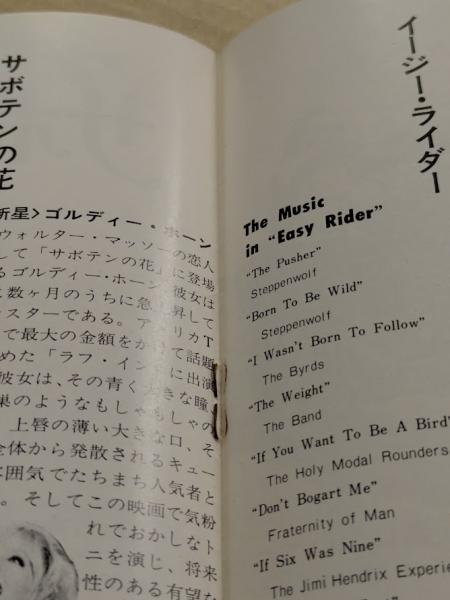 サボテンの花
新星＞ゴルディー・ホーン
ウォルター・マッソーの恋人
して「サボテンの花」に登場
るゴルディー・ホーン。彼女は
数ヶ月のうちに急上昇して
スターである。アメリカT
で最大の金額をかけて話題
めた「ラフ・イン」に出演
彼女は、その青く大きな瞳、
巣のようなもしゃもしゃの
上唇の薄い大きな口、そ
全体から発散されるキュー
囲気でたちまち人気者と
。そしてこの映画で気粉
れでおかしなト
ニを演じ、将来
性のある有望な
イージー・ライダー
The Music
in "Easy Rider"
"The Pusher"
Steppenwolf
"Born To Be Wild"
Steppenwolf
"I Wasn't Born To Follow"
The Byrds
"The Weight"
The Band
"If You Want To Be A Bird"
The Holy Modal Rounders
"Don't Bogart Me"
Fraternity of Man
"If Six Was Nine"
The Jimi Hendrix Experie